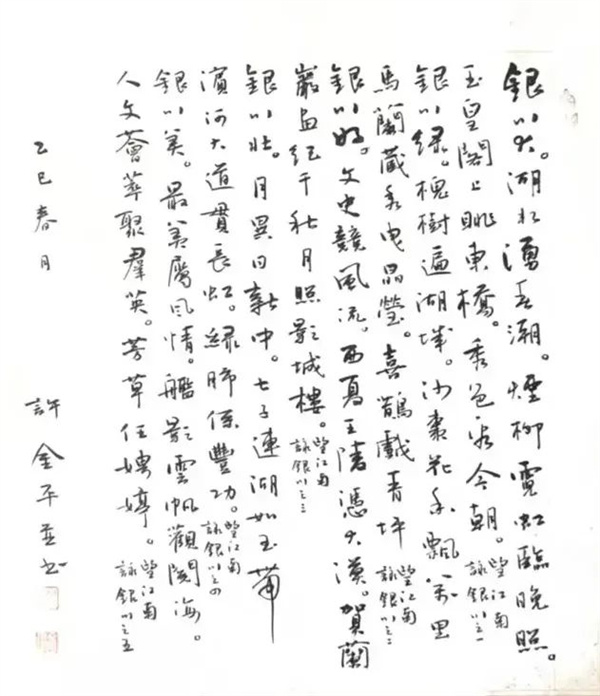 銀川大。湖水湧春潮。煙柳霓虹臨晚照。
玉皇閣上眺東橋。秀色最今朝。望江南詠銀川之一
銀川綠。槐樹遍湖城。沙棗花香飄萬里
馬蘭藏秀曳晶瑩。喜鵲戲青坪望江南詠銀川之二
銀川好。文史競風流。西夏王陵憑大漠。賀蘭
巖畫紀千秋月照影城樓。望江南詠銀川之三
銀川壯。月異日新中。七子連湖如玉帶
濱河大道貫長虹。綠肺係豐功。望江南詠銀川之四
銀川美。最美屬風情。艦影雲帆觀閱海。
人文薈萃聚羣英。芳草任娉婷。望江南詠銀川之五
乙巳春月
許金平並書